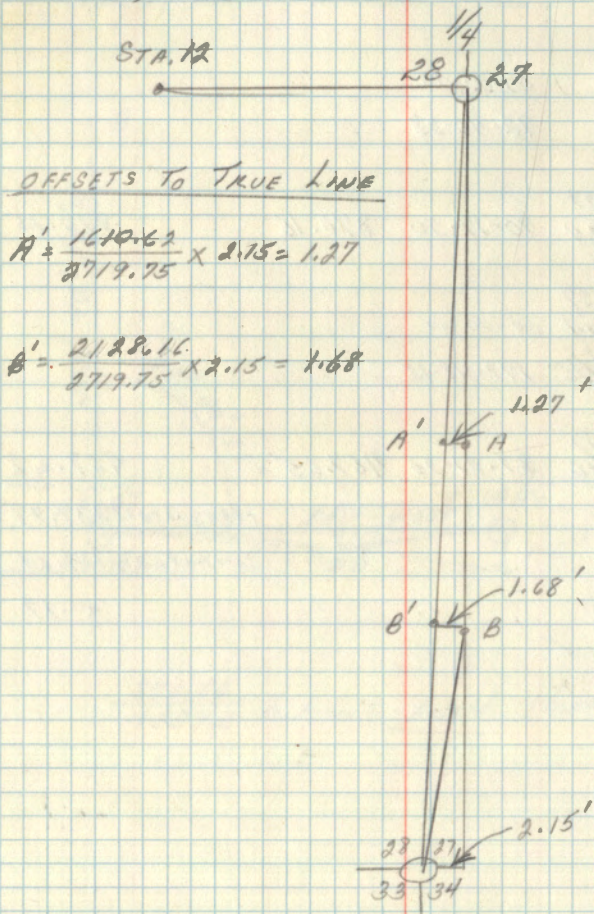 1/4
STA. 12
28 27
OFFSETS TO TRUE LINE
A' = 1610.62 / 2719.75 x 2.15 = 1.27
B' = 2128.16 / 2719.75 x 2.15 = 1.68
1.27'
A' A
1.68'
B' B
2.15'
28 27
33 34